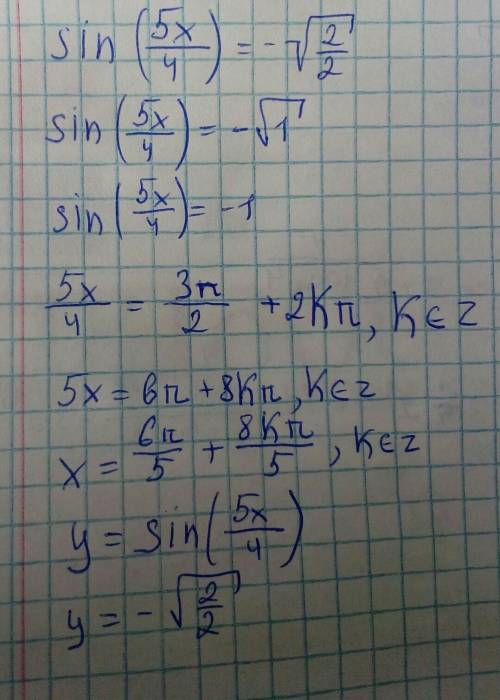 sin(5x/4) = -√(2/2)
sin(5x/4) = -√1
sin(5x/4) = -1
5x/4 = 3π/2 + 2Kπ, K∈z
5x = 6π + 8Kπ, K∈z
x = 6π/5 + 8Kπ/5, K∈z
y = sin(5x/4)
y = -√(2/2)